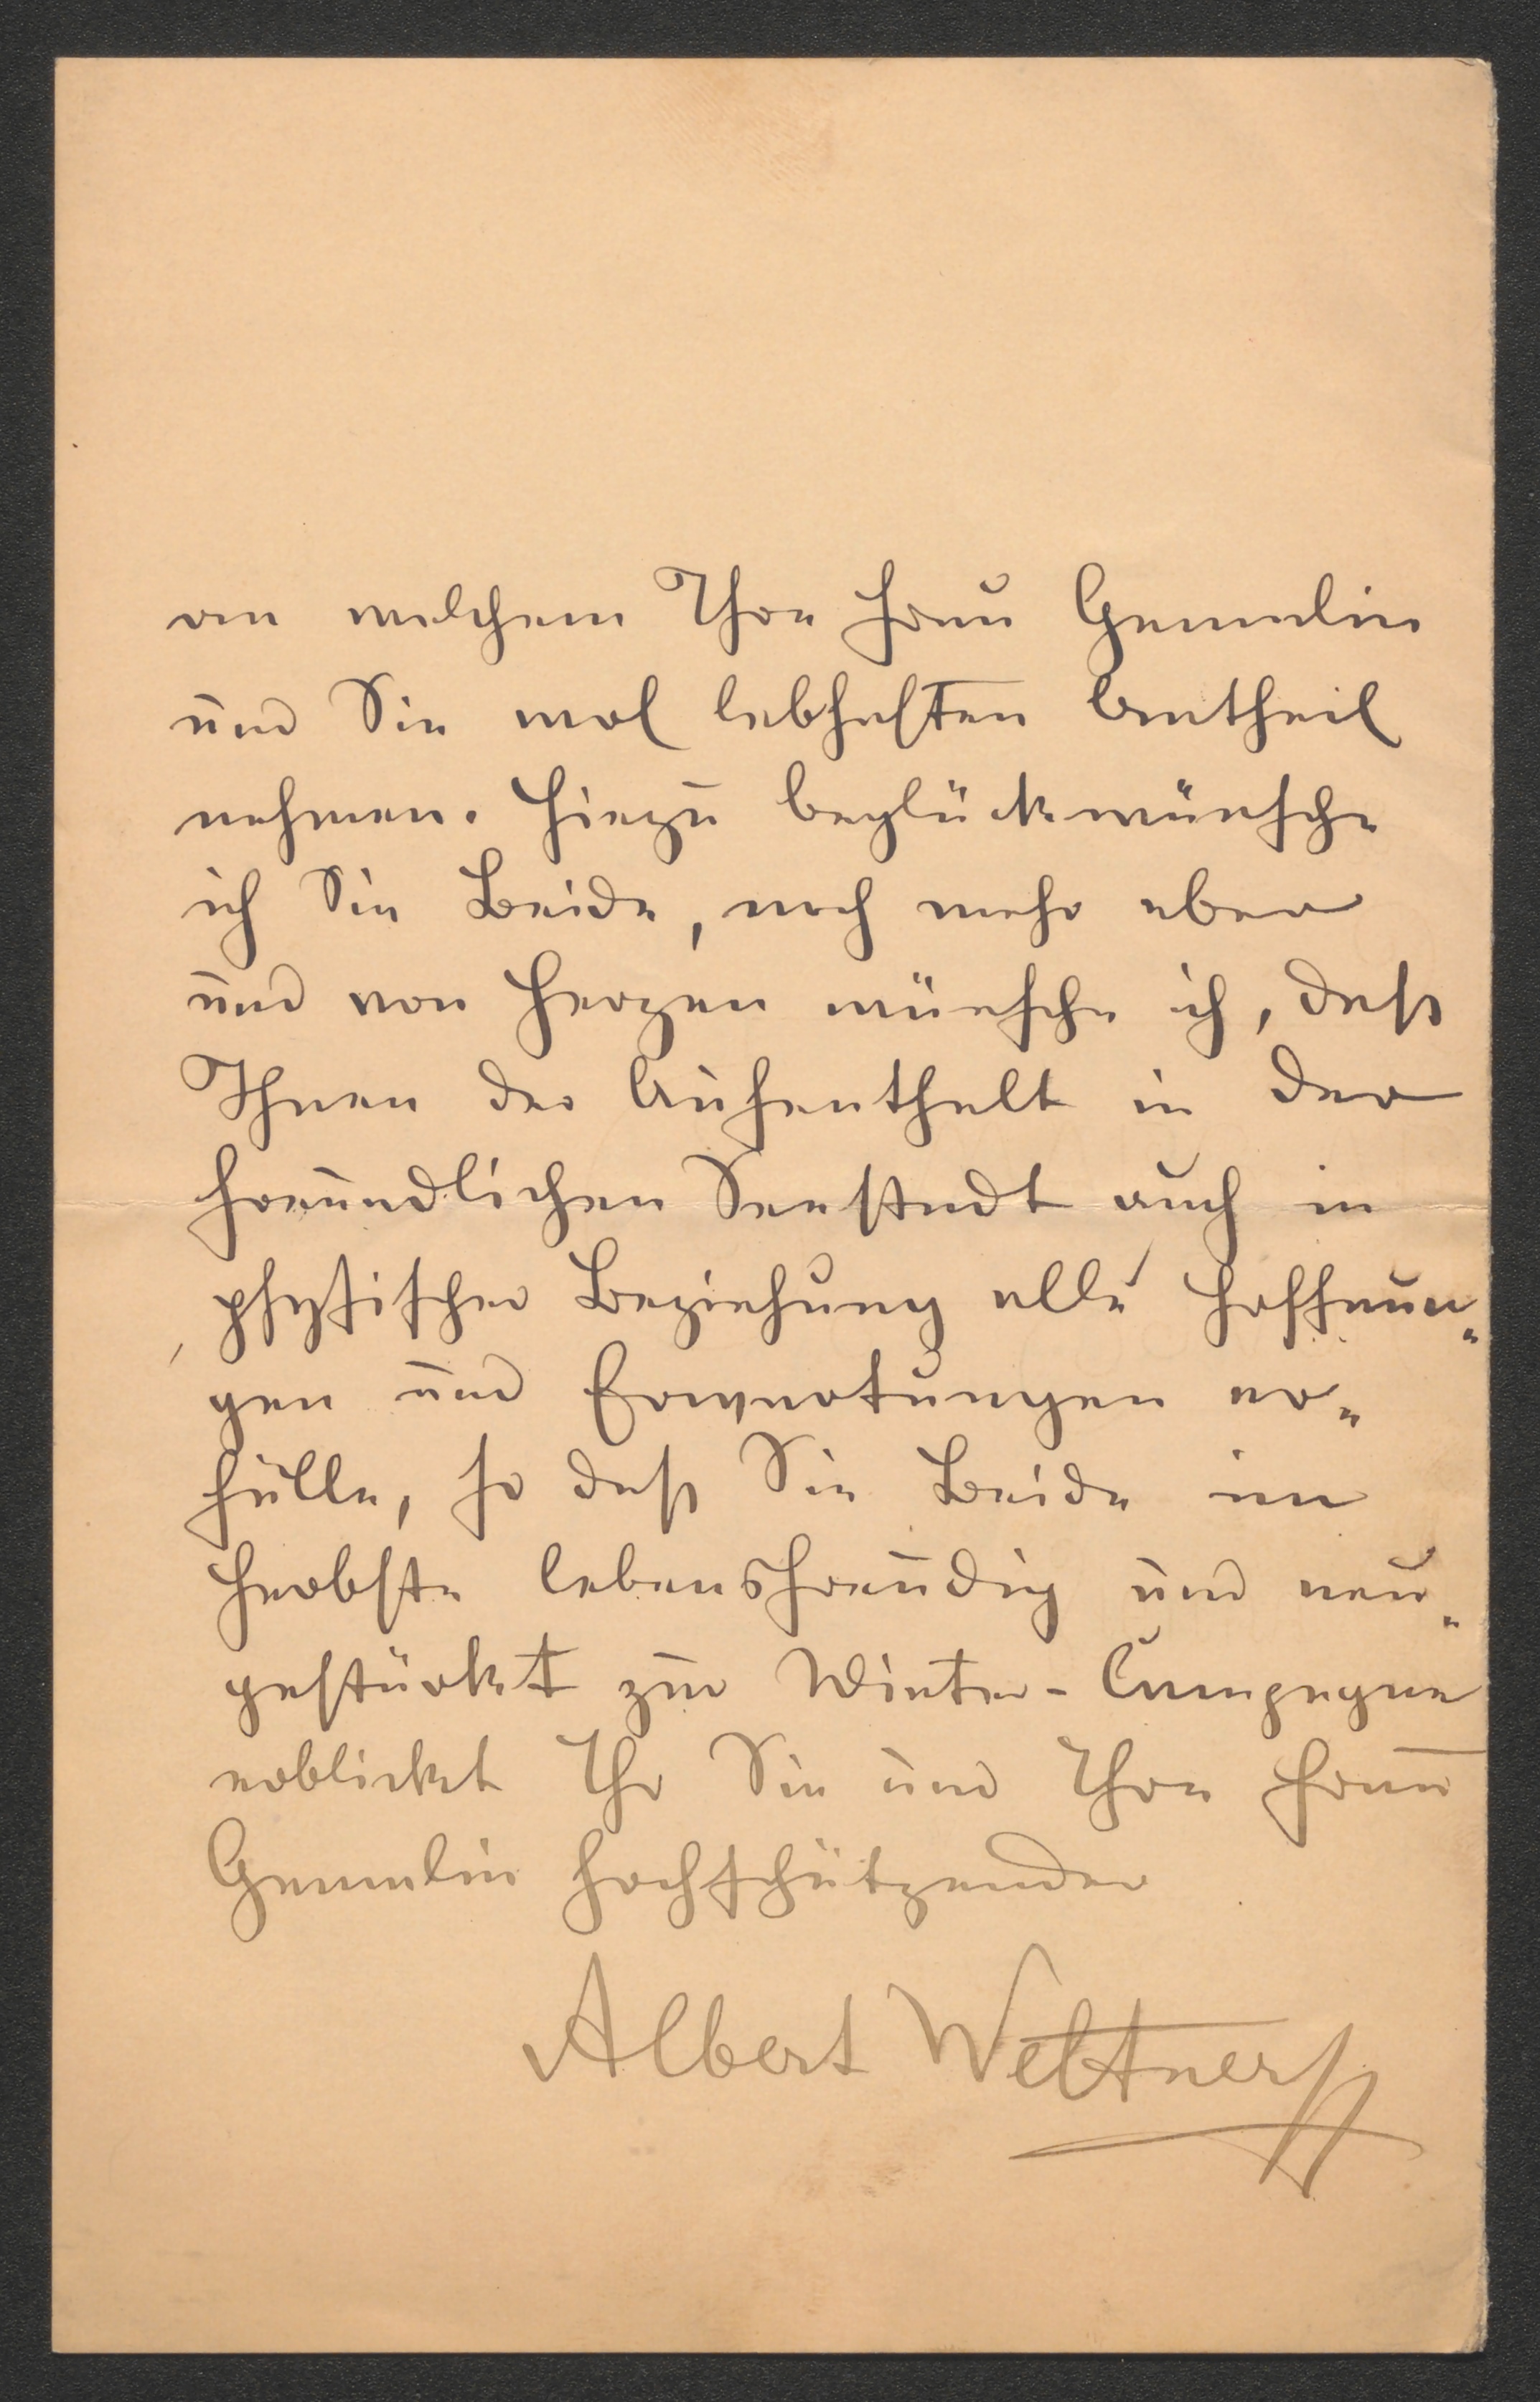 an welchem Ihre Frau Gemalin
und Sie wol lebhaften Antheil
nehmen. Hiezu beglückwünsche
ich Sie Beide, noch mehr aber
und von Herzen wünsche ich, daß
Ihnen der Aufenthalt in der
freundlichen Seestadt auch in
physischer Beziehung alle Hoffnun„
gen und Erwartungen er„
fülle, so daß Sie Beide im
Herbste lebensfreudig und neu„
gestärkt zur Winter-Campagne
erblickt Ihr Sie und Ihre Frau
Gemalin hochschätzender
Albert Weltner